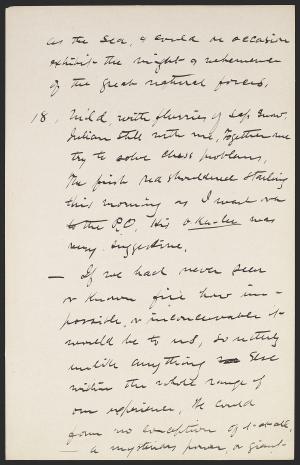 as the sea, & could on occasion
exhibit the might & vehemence
of the great natural forces.
18. Mild, with flurries of sap snow.
Julian still with me, together we
try to solve chess problems.
The first red shouldered starling
this morning as I went on
to the P.O. His o-ka-lee was
very suggestive.
— If we had never seen
or known fire how im-
possible, or inconceivable it
would be to us, so utterly
unlike anything else
within the whole range of
our experience. We could
form no conception of it at all,
— a mysterious power, or giant